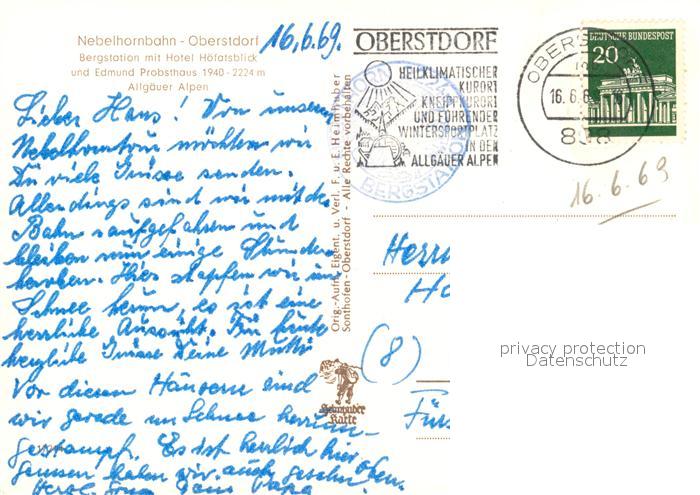 Nebelhornbahn - Oberstdorf
Bergstation mit Hotel Höfatsblick
und Edmund Probsthaus 1940 - 2224 m
Allgäuer Alpen
16.6.69.
Lieber Hans! Von unserer
Nebelhorntour möchten wir
Dir viele Grüsse senden.
Allerdings sind wir mit der
Bahn raufgefahren und
bleiben nun einige Stunden
heroben. Hier stapfen wir im
Schnee herum, es ist eine
herrliche Aussicht. Für heute
herzliche Grüsse Deine Mutti
Vor diesen Häusern sind
wir gerade im Schnee herum-
gestampft. Es ist herrlich hier oben.
Gemsen haben wir auch gesehen.
Herzl. Dein Papa
Orig.-Aufn., Eigent. u. Verl. F. u. E. Heimhuber
Sonthofen - Oberstdorf - Alle Rechte vorbehalten
Heimhuber
Karte
OBERSTDORF
HEILKLIMATISCHER
KURORT
KNEIPPKURORT
UND FÜHRENDER
WINTERSPORTPLATZ
IN DEN
ALLGÄUER ALPEN
BERGSTATION
OBERSTDORF
16.6.6
898
DEUTSCHE BUNDESPOST
20
16.6.69
Herrn
(8)
privacy protection
Datenschutz